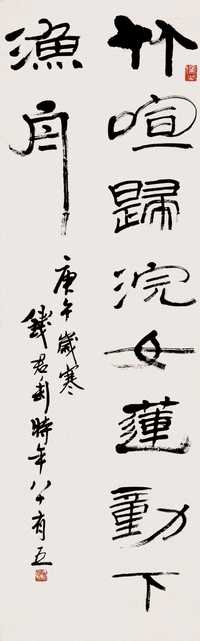 竹喧歸浣女蓮動下
漁舟
庚午歲寒
錢君匋時年八十有五